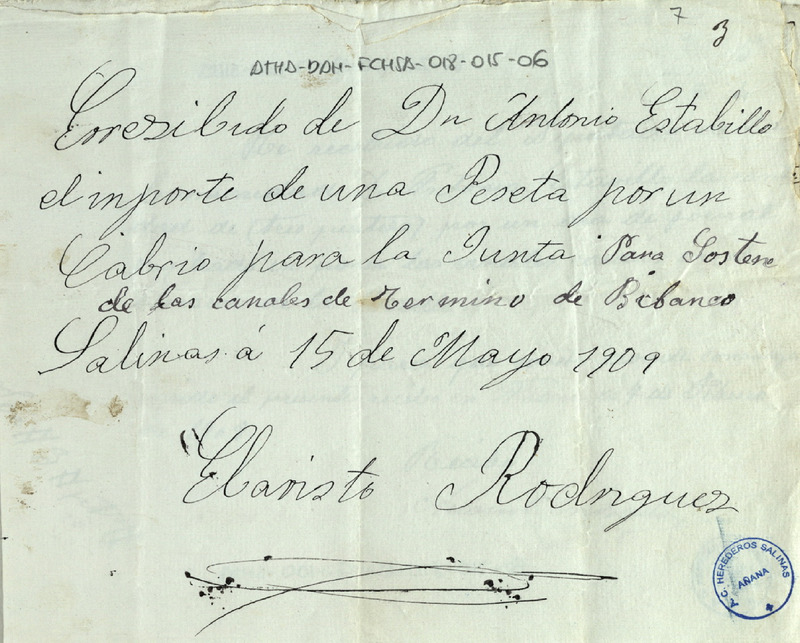 7 3
ATHA-DAH-FCHSA-018-015-06
Erresibido de Dn Antonio Estabillo
el inporte de una Peseta por un
Cabrio para la Junta Para Sostene
de las canales de Termino de Bibanco
Salinas á 15 de Mayo 1909
Ebaristo Rodriguez
A. C. HEREDEROS SALINAS
AÑANA